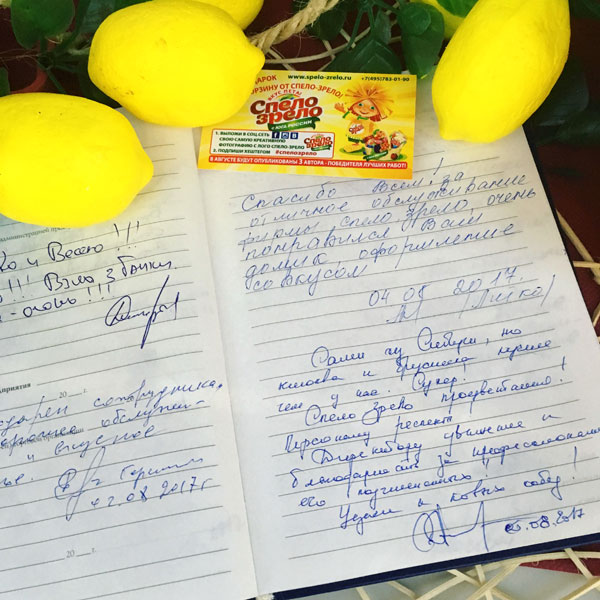 ДАРОК
www.spelo-zrelo.ru
+7(495)783-01-90
ОРЗИНУ ОТ СПЕЛО-ЗРЕЛО!
ВКУС ЛЕТА!
Спело
зрело
с юга России
1. ВЫЛОЖИ В СОЦ.СЕТЬ
СВОЮ САМУЮ КРЕАТИВНУЮ
ФОТОГРАФИЮ С ЛОГО СПЕЛО-ЗРЕЛО
2. ПОДПИШИ ХЕШТЕГОМ #спелозрело
В АВГУСТЕ БУДУТ ОПУБЛИКОВАНЫ 3 АВТОРА - ПОБЕДИТЕЛЯ ЛУЧШИХ РАБОТ!
администрацией
ко и Весело !!!
!!! Взяло 3 банки
- огонь !!!
роприятия
20 г.
сотрудника
обслужи-
и вкусное
02.08.2017г
20 г.
Спасибо Всем! за
отличное обслуживание
фирмы спело зрело очень
понравился Ваш
домик, оформление
со вкусом
04 08 2017.
Сами из Сибири, но
клюква и брусника
чем у нас. Супер!
Спело Зрело процветания!
Персоналу респект!
Директору уважение и
благодарность за профессионализм
его подчиненных!
Удачи и новых побед!
08.2017